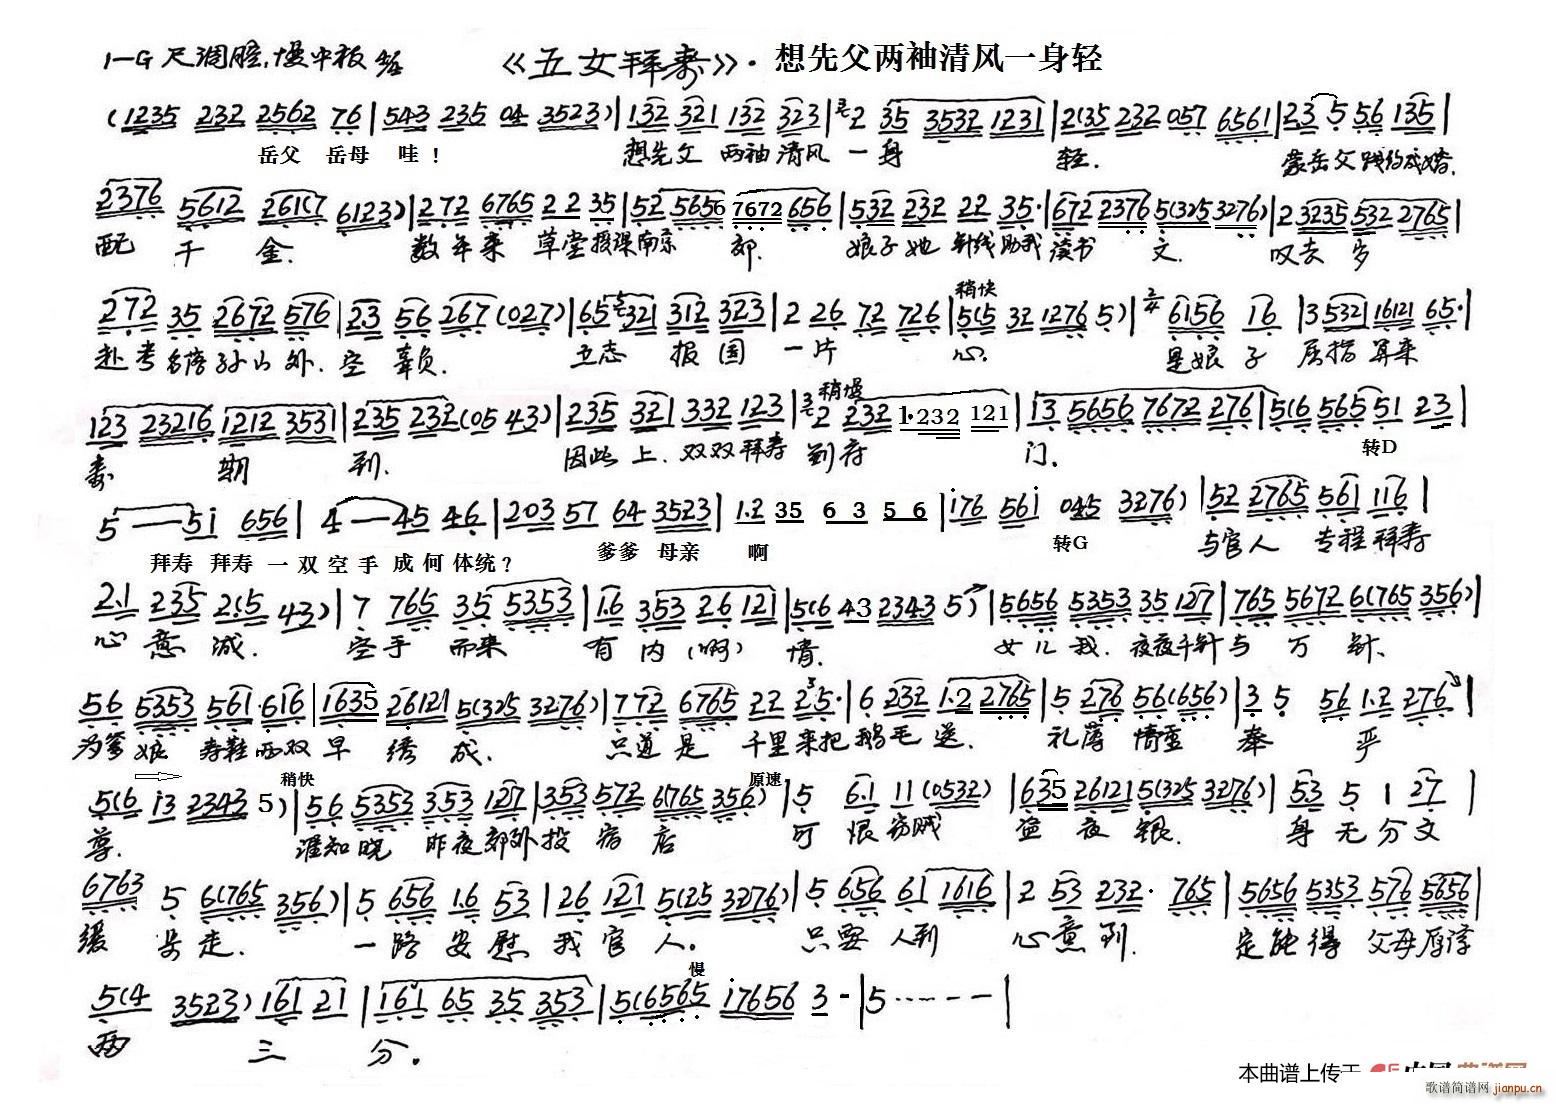 1=G 尺调腔,慢中板 《五女拜寿》·想先父两袖清风一身轻
(1235 232 2562 76 | 543 235 04 3523) | 132 321 132 323 | 2 35 3532 1231 | 2(35 232 057 6561 | 2.3 5 5.6 135 |
岳父 岳母 哇! 想先父 两袖清风 一身 轻. 蒙岳父践约成婚.
2376 5612 261(7 6123) | 272 6765 22 35 | 52 5656 7672 656 | 532 232 22 35· | 672 2376 5(325 3276) | 2 3235 532 2765 |
配 千 金. 数年来 草堂授课南京 郊. 娘子她 针线助我读书 文. 叹去 岁
272 35 2672 576 | 23 56 267 (027) | 65 321 312 323 | 2 26 72 726 | 5(5 32 1276 5) | 2/4 6156 16 | 3532 16121 65· |
稍快
赴考名落孙山外. 空 辜负. 立志 报国 一片 心. 是娘子 屈指算来
123 23216 1212 3531 | 235 232 (05 43) | 235 32 332 123 | 2 232 1·232 121 | 13 5656 7672 276 | 5(6 565 51 23 |
稍慢
寿 期 到. 因此上. 双双拜寿 到府 门. 转D
5 — — 5i 656 | 4 — — 45 46 | 203 57 64 3523 | 1.2 35 63 56 | i76 56i 045 3276) | 52 2765 561 116 |
拜寿 拜寿 一双空手成何体统? 爹爹 母亲 啊 转G 与官人 专程拜寿
2.1 235 2(5 43) | 7 765 35 5353 | 1.6 353 26 121 | 5(6 43 2343 5) | 5656 5353 35 127 | 765 5672 6(765 356) |
心意诚. 空手 而来 有内(啊) 情. 女儿我. 夜夜千针与万针.
56 5353 561·616 | 1635 26121 5(325 3276) | 772 6765 22 2 5· | 6 232 1·2 2765 | 5 276 56 (656) | 3 5 56 1.2 276 |
为爹娘 寿鞋两双早 绣成. 只道是 千里来把鹅毛送. 礼薄情重 奉 严
5(6 i3 2343 5) | 56 5353 3.53 127 | 353 572 6(765 356) | 5 6.1 11 (0532) | 635 26121 5(325 3276) | 53 5 1 27 |
稍快 原速
尊. 谁知晓 昨夜郊外投宿店 可恨窃贼 盗夜银. 身无分文
6763 5 6(765 356) | 5 656 1.6 53 | 26 121 5(25 3276) | 5 656 61 1616 | 2 53 232· 765 | 5656 5353 576 5656 |
缓步走. 一路安慰我官人. 只要人到 心意到. 定能得 父母厚谆
5(4 3523) 161 21 | 161 65 35 353 | 5(6565 i7656 3 - | 5 ······ — — |
慢
两 三 分.
本曲谱上传于
歌谱简谱网 jianpu.cn